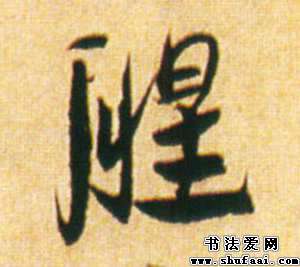 腥
书法爱网
www.shufaai.com